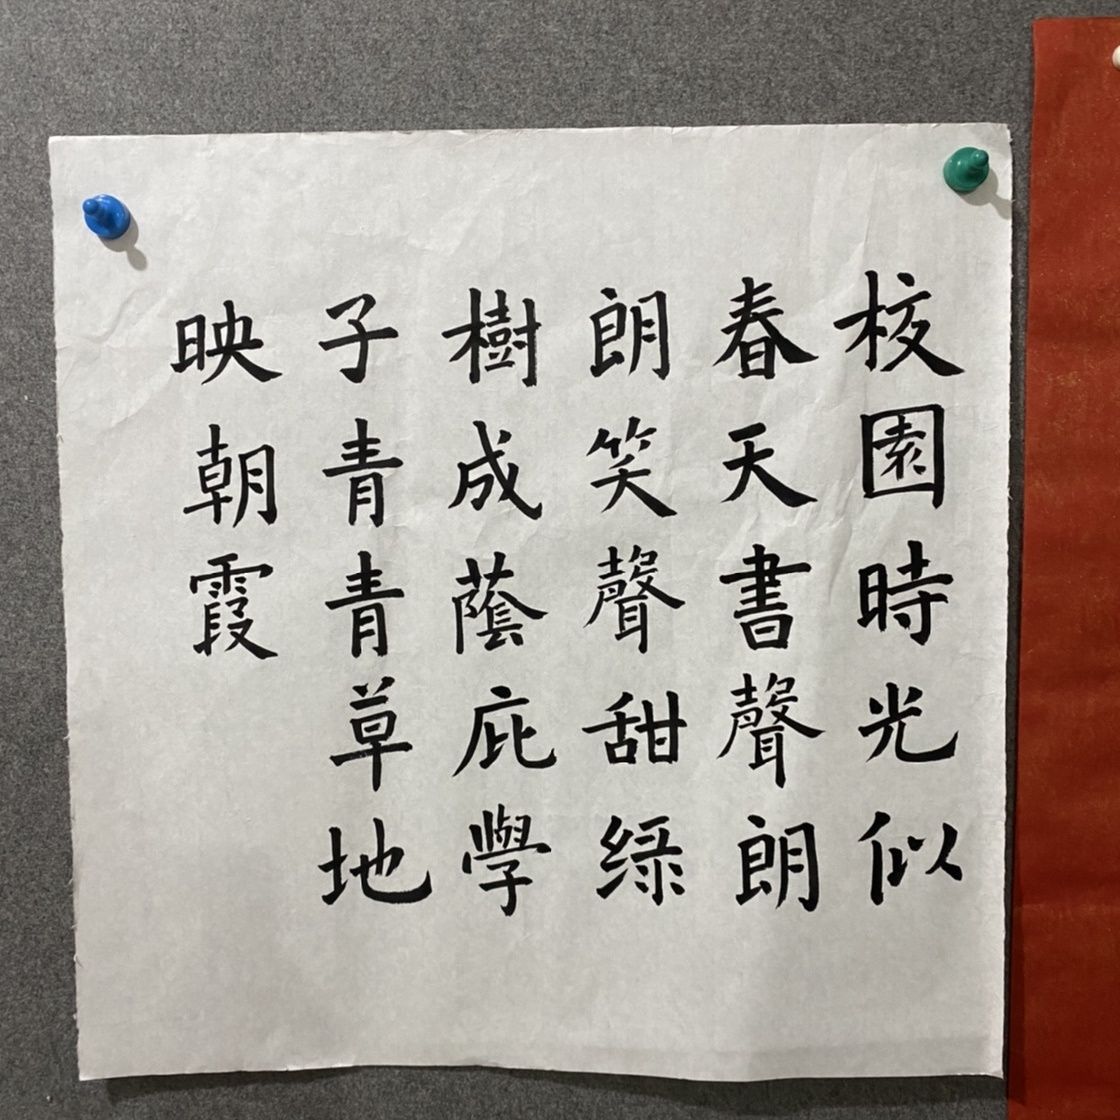 校園時光似
春天書聲朗
朗笑聲甜緑
樹成蔭庇學
子青青草地
映朝霞